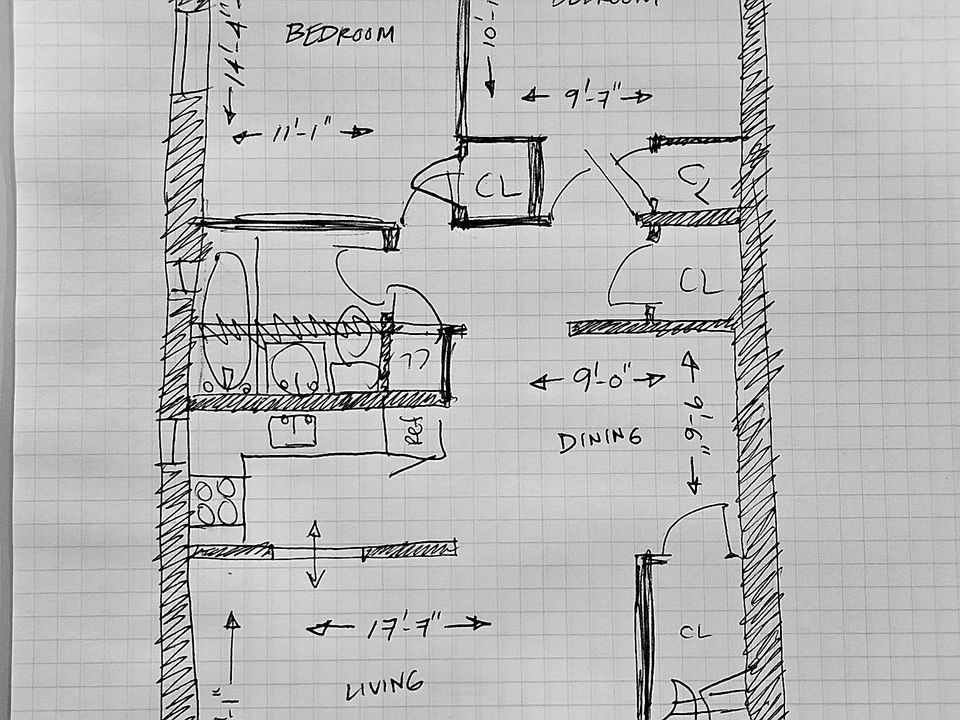 BEDROOM
BEDROOM
14'-4"
10'-1
9'-7"
11'-1"
CL
CL
CL
9'-0"
9'-6"
Ref
DINING
17'-7"
CL
LIVING